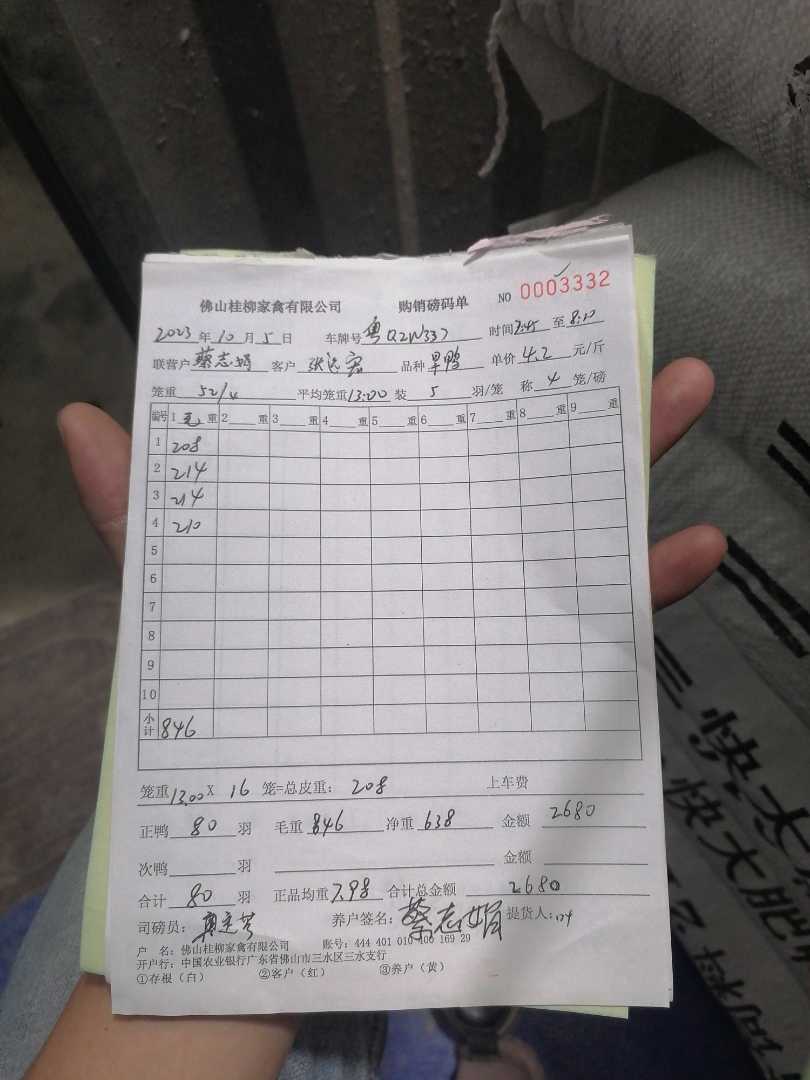 佛山桂柳家禽有限公司 购销磅码单 NO 0003332
2023年10月5日 车牌号 粤Q2W337 时间7:45至8:10
联营户 蔡志娟 客户 品种 旱鸭 单价 4.2 元/斤
笼重 52/4 平均笼重 13.00 装 5 羽/笼 称 4 笼/磅
编号 1毛重 2重 3重 4重 5重 6重 7重 8重 9重
1 208
2 214
3 214
4 210
5
6
7
8
9
10
小计 846
笼重 13.00 X 16 笼=总皮重: 208 上车费
正鸭 80 羽 毛重 846 净重 638 金额 2680
次鸭 羽 金额
合计 80 羽 正品均重 7.98 合计总金额 2680
司磅员: 养户签名: 蔡志娟 提货人:
户 名: 佛山桂柳家禽有限公司 账号: 444 401 010 400 169 29
开户行: 中国农业银行广东省佛山市三水区三水支行
①存根(白) ②客户(红) ③养户(黄)
三快大
快大肥